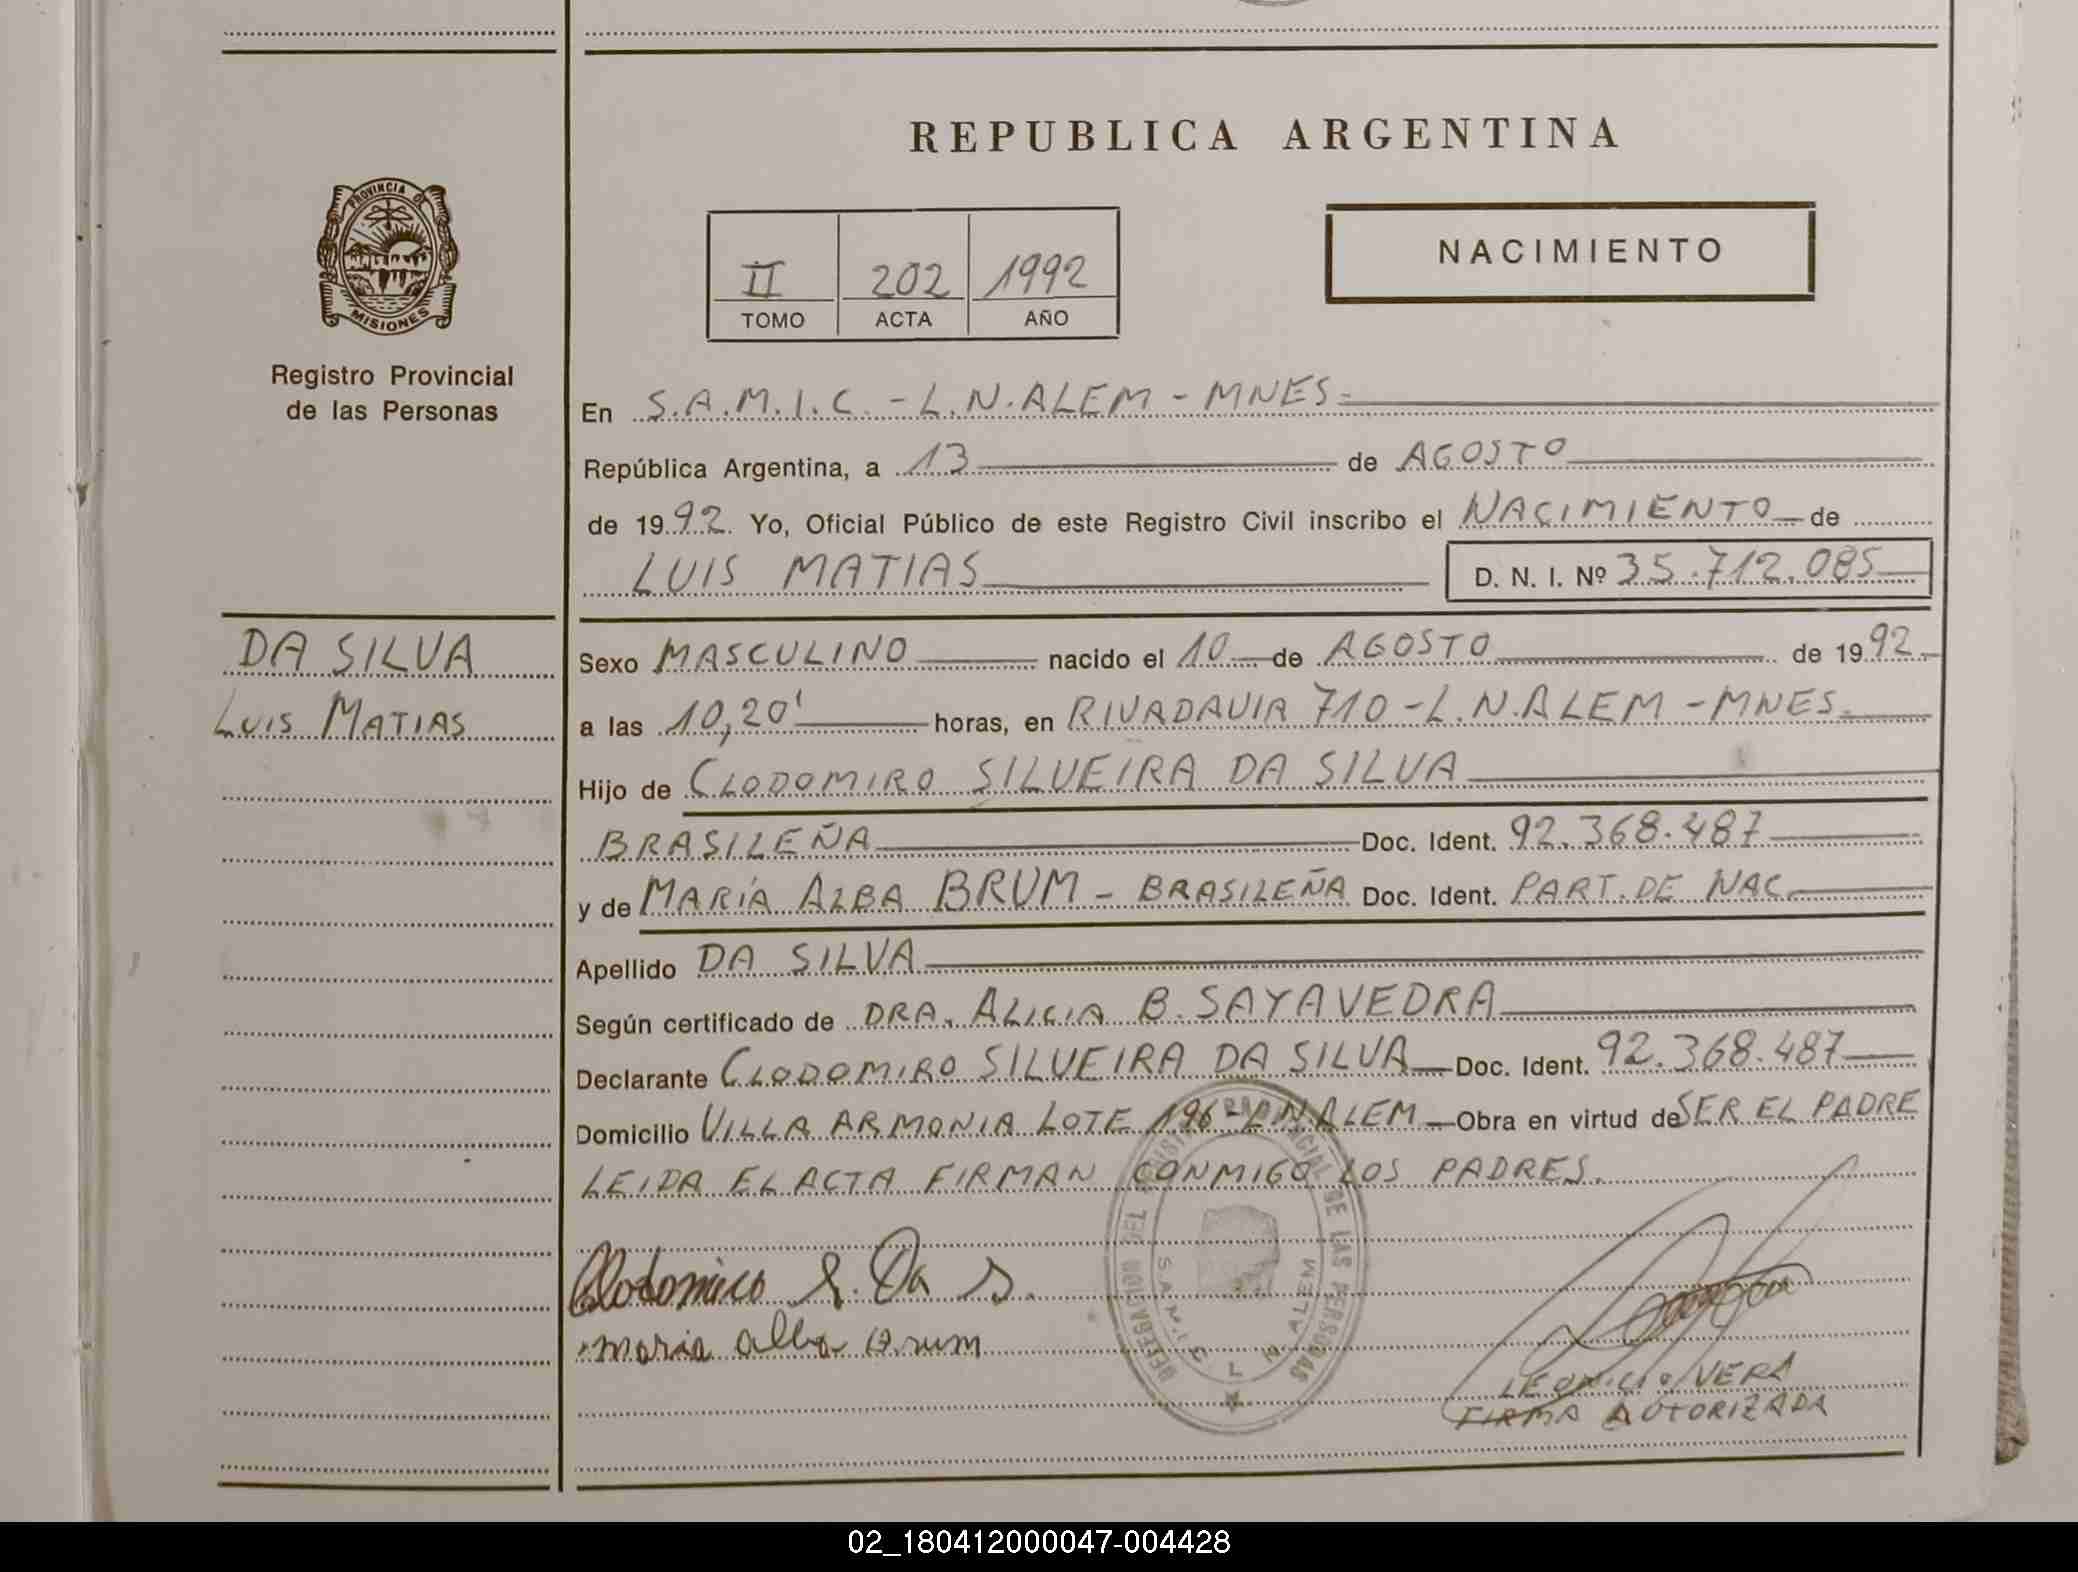 REPUBLICA ARGENTINA
PROVINCIA DE
MISIONES
Registro Provincial
de las Personas
II 202 1992
TOMO ACTA AÑO
NACIMIENTO
En S.A.M.I.C. - L.N.ALEM - MNES.
República Argentina, a 13 de AGOSTO
de 1992. Yo, Oficial Público de este Registro Civil inscribo el NACIMIENTO de
LUIS MATIAS D. N. I. Nº 35.712.085
DA SILVA
LUIS MATIAS
Sexo MASCULINO nacido el 10 de AGOSTO de 1992.
a las 10,20' horas, en RIVADAVIA 710 - L.N.ALEM - MNES.
Hijo de CLODOMIRO SILVEIRA DA SILVA
BRASILEÑA Doc. Ident. 92.368.487
y de MARÍA ALBA BRUM - BRASILEÑA Doc. Ident. PART. DE NAC.
Apellido DA SILVA
Según certificado de DRA. ALICIA B. SAYAVEDRA
Declarante CLODOMIRO SILVEIRA DA SILVA Doc. Ident. 92.368.487
Domicilio VILLA ARMONIA LOTE 196 - L.N.ALEM Obra en virtud de SER EL PADRE
LEIDA EL ACTA FIRMAN CONMIGO LOS PADRES.
Clodomiro S. Da S.
maria alba Brum
DELEGACION DEL REGISTRO PROVINCIAL DE LAS PERSONAS
S.A.M.I.C. L N ALEM
LEONICIO VERA
FIRMA AUTORIZADA
02_180412000047-004428